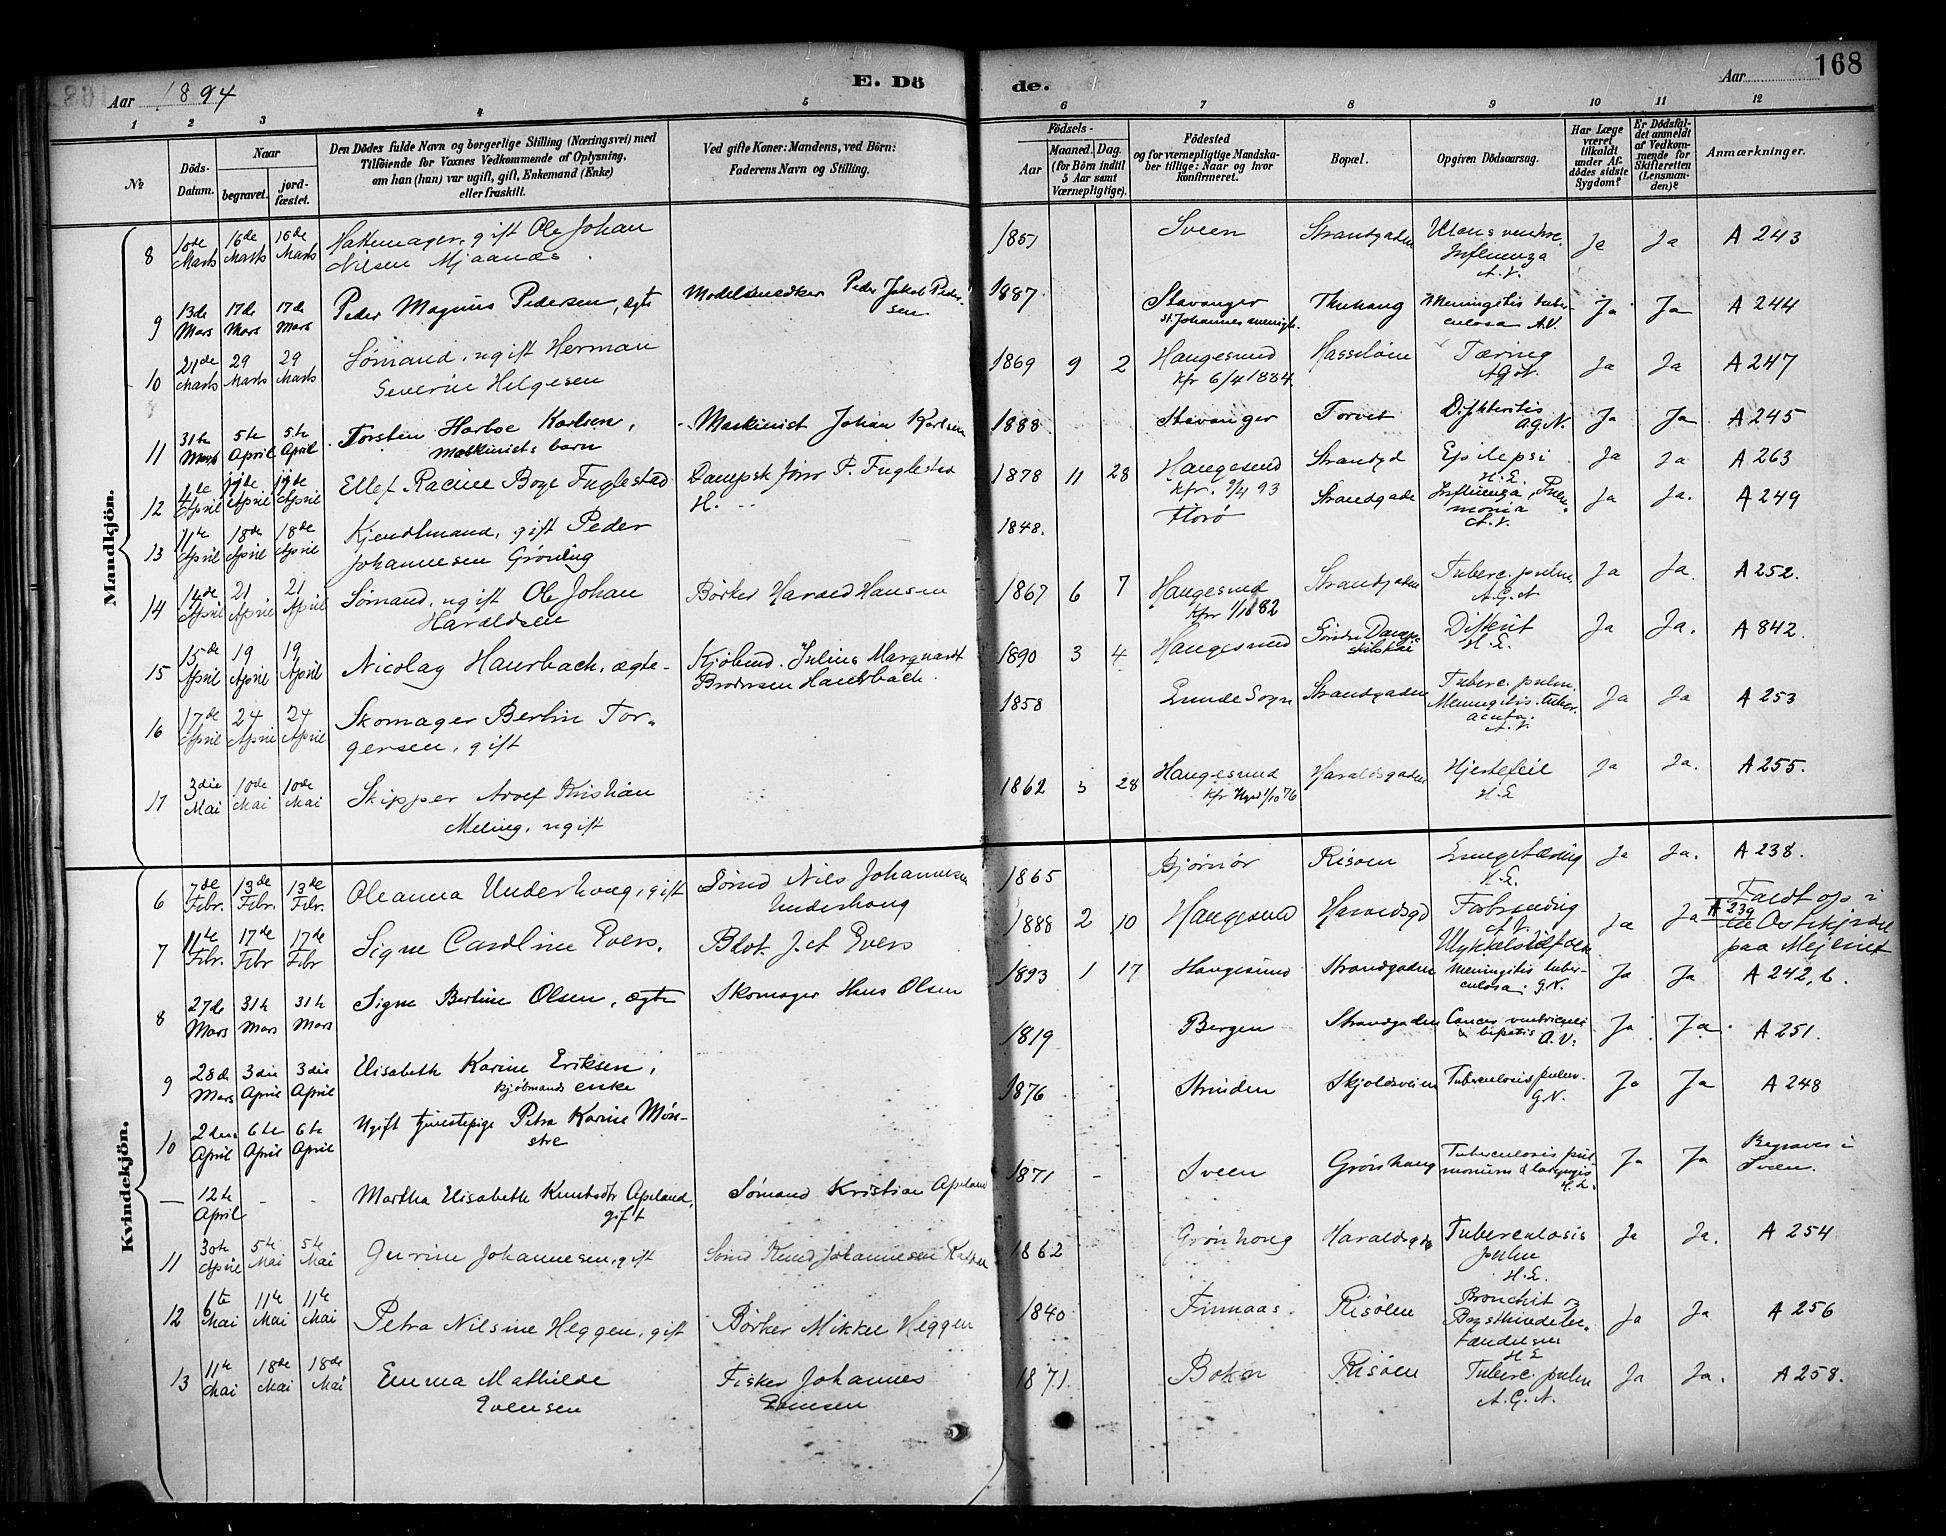 Aar 1894
E. Dö
de.
Aar
168
1 2 3 4 5 6 7 8 9 10 11 12
№
Döds-Datum.
Naar
begravet.
jordfæstet.
Den Dödes fulde Navn og borgerlige Stilling (Næringsvei) med
Tilföiende for Voxnes Vedkommende af Oplysning,
om han (hun) var ugift, gift, Enkemand (Enke)
eller fraskilt.
Ved gifte Koner: Mandens, ved Börn:
Faderens Navn og Stilling.
Födsels-
Aar
Maaned. Dag.
(for Börn indtil
5 Aar samt
Værnepligtige).
Födested
og for værnepligtige Mandska-
ber tillige: Naar og hvor
konfirmeret.
Bopæl.
Opgiven Dödsaarsag.
Har Læge
været
tilkaldt
under Af-
dödes sidste
Sygdom?
Er Dödsfal-
det anmeldt
af Vedkom-
mende for
Skifteretten
(Lensman-
den)?
Anmærkninger.
Mandkjön.
8 10de Marts 16de Marts 16de Marts Hattemager, gift Ole Johan 1851 Sveen Strandgaden Ulcus ventre. Ja Ja A 243
Nilsen Mjaanes Influenza
A.V.
9 13de Mars 17de Mars 17de Mars Peder Magnus Pedersen, ægte Modelsnedker Peder Jakob Peder- 1887 Stavanger Meningitis tuber- Ja Ja A 244
sen St. Johannes menigh. culosa A.V.
10 21de Marts 29 Marts 29 Marts Sømand, ugift Herman 1869 9 2 Haugesund Hasseløen Tæring Ja Ja A 247
Severin Helgesen Kfr 6/4 1884 A.G.N.
11 31te Mars 5te April 5te April Torsten Harboe Karlsen, Maskinist Johan Karlsen 1888 Stavanger Torvet Difhteritis Ja Ja A 245
maskinists barn A.G.N.
12 4de April April April Ellef Racine Boye Fuglestad Dampsk. P. Fuglestad 1878 11 28 Haugesund Strandgd Epilepsi Ja Ja A 263
H. Kfr. 9/4 93 H.E.
13 11te April 18de April 18de April Kjendtmand, gift Peder 1848. Florø Strandgade Influenza, Pneu- Ja Ja. A 249
Johannesen Grøning monia
A.V.
14 14de April 21 April 21 April Sømand, ugift Ole Johan Børker Harald Hansen 1867 6 7 Haugesund Strandgaden Tuberc. pulm. Ja Ja. A 252.
Haraldsen Kfr 1/10 82 A.G.N.
15 15de April 19 April 19 April Nicolay Haurbach, ægte Kjøbmd. Julius Marquardt 1890 3 4 Haugesund Søndre Damp- Difterit Ja Ja. A 842.
Brodersen Haurbach. skibskai H.E.
16 17de April 24 April 24 April Skomager Bertin Tor- 1858 Sogn Strandgaden Tuberc. pulm. Ja Ja A 253
gersen, gift Meningitis tuber.
acuta.
A.V.
17 3die Mai 10de Mai 10de Mai Skipper Kristian 1862 5 28 Haugesund Haraldsgaden Hjertefeil Ja Ja. A 255.
Meling, ugift Kfr Hgsd 1/10 76 H.E.
Kvindekjön.
6 7de Febr. 13de Febr. 13de Febr. Oleanna Underhoug, gift Sømd Nils Johannesen 1865 Bjørnør Risøen Lungetæring Ja Ja. A 238.
Underhoug H.E.
7 11te Febr. 17de Febr 17de Febr Signe Caroline Evers. J. Evers 1888 2 10 Haugesund Haraldsgd Forbrænding Ja Ja A 239 Faldt op i
A.V. Ostekjedel
Ulykkestilfælde paa Mejeriet
8 27de Mars 31te Mars 31te Mars Signe Bertine Olsen, ægte Skomager Hans Olsen 1893 1 17 Haugesund Strandgaden Meningitis tuber- Ja Ja A 242, b.
culosa. G.N.
9 28de Mars 3die April 3die April Elisabeth Karine Eriksen, 1819 Bergen Strandgaden Cancer ventriculi Ja Ja A 251.
Kjøbmands enke & hepatis A.V.
10 2den April 6te April 6te April Ugift tjenestepige Petra Karine Møn- 1876 Strinden Skjoldaveien Tuberculosis pulm. Ja Ja A 248
stre G.N.
— 12te April - - Martha Elisabeth Knutsdtr Apeland, Sømand Kristian Apeland 1871 - Sveen Grønhaug Tuberculosis pul- Ja Ja Begraves i
gift monum & laryngis Sveen.
H.E.
11 30te April 5te Mai 5te Mai Gurine Johannesen, gift Sømd Knud Johannesen 1862 Grønhoug Haraldsgd Tuberculosis Ja Ja. A 254
pulm
H.E.
12 6te Mai 11te Mai 11te Mai Petra Nilsine Heggen, gift Børker Mikkel Heggen 1840 Finnaas. Risøen Bronchit og Ja Ja A 256
Brysthindebe-
tændelse
H.E
13 11te Mai 18de Mai 18de Mai Emma Mathilde Fisker Johannes 1871. Bokn Risøen Tuberc. pulm Ja Ja. A 258.
Evensen Evensen A.G.N.